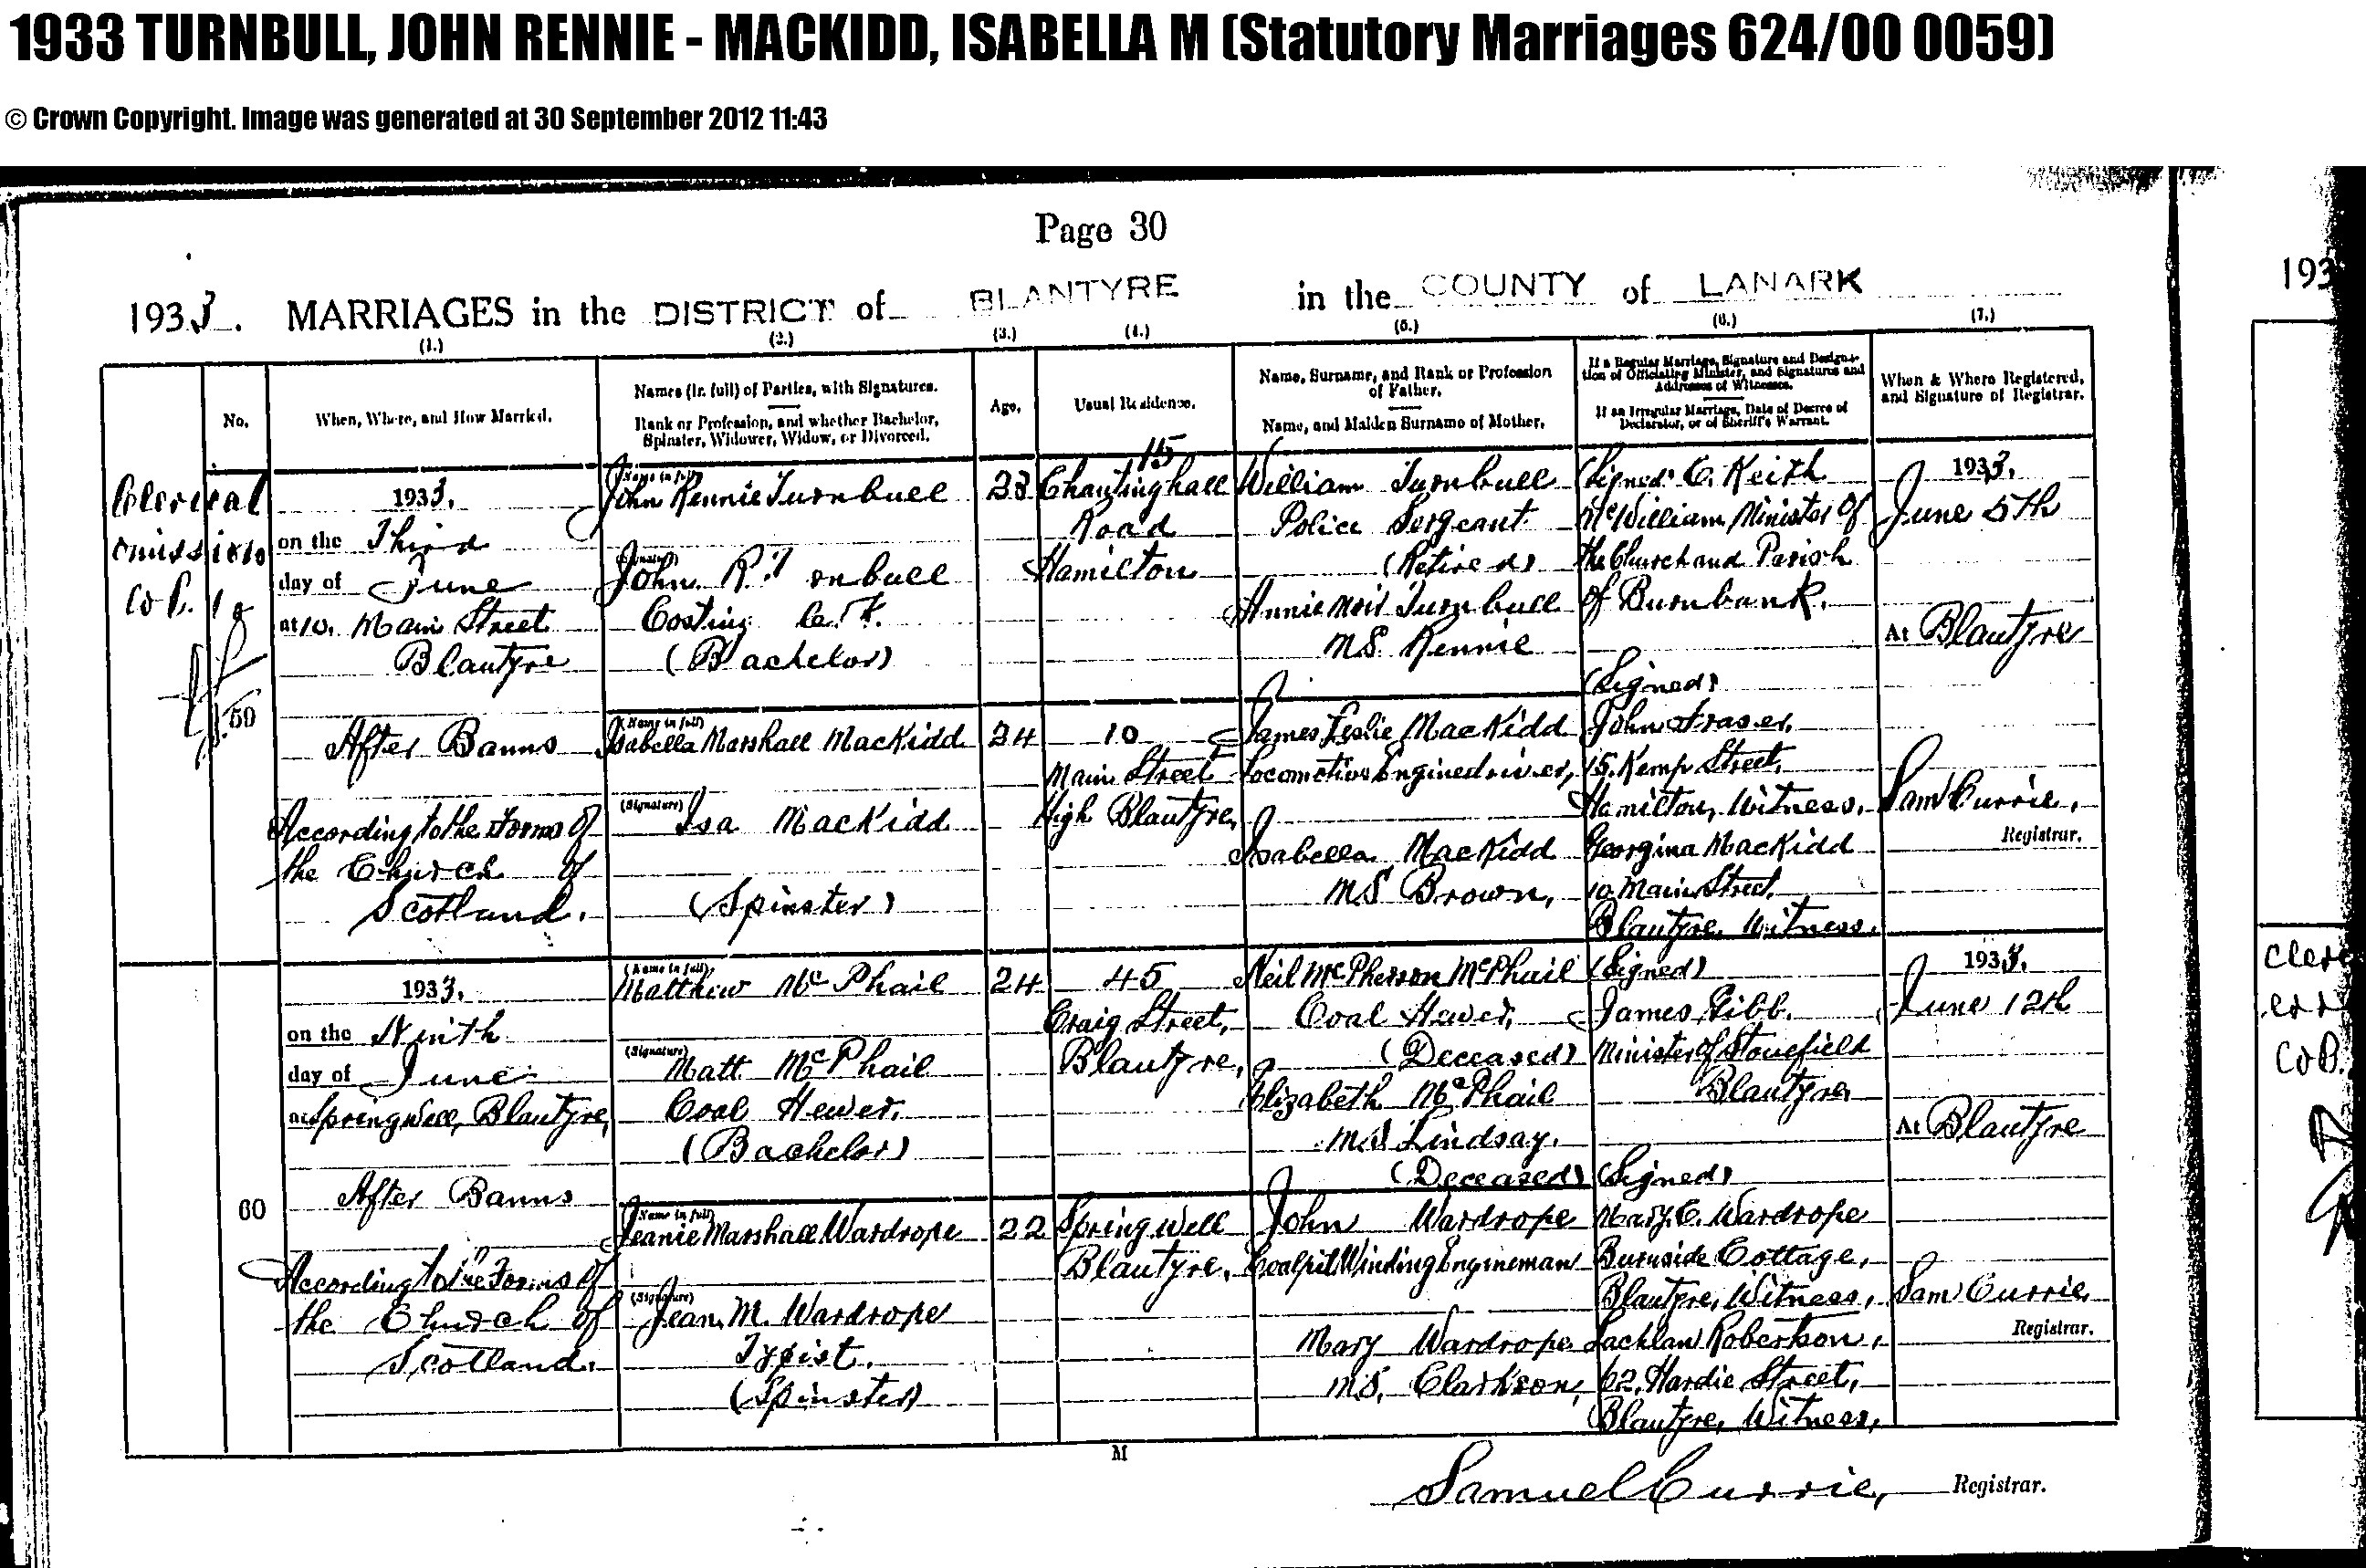 1933 TURNBULL, JOHN RENNIE - MACKIDD, ISABELLA M (Statutory Marriages 624/00 0059)
© Crown Copyright. Image was generated at 30 September 2012 11:43
Page 30
1933. MARRIAGES in the DISTRICT of BLANTYRE in the COUNTY of LANARK
193
(1.) (2.) (3.) (4.) (5.) (6.) (7.)
No.
When, Where, and How Married.
Names (in full) of Parties, with Signatures.
Rank or Profession, and whether Bachelor,
Spinster, Widower, Widow, or Divorced.
Age.
Usual Residence.
Name, Surname, and Rank or Profession
of Father.
Name, and Maiden Surname of Mother.
If a Regular Marriage, Signature and Designa-
tion of Officiating Minister, and Signatures and
Addresses of Witnesses.
If an Irregular Marriage, Date of Decree of
Declarator, or of Sheriff's Warrant.
When & Where Registered,
and Signature of Registrar.
Clerical
omission
59
1933.
on the Third
day of June
at 10. Main Street
Blantyre
After Banns
According to the Forms of
the Church of
Scotland.
(Name in full)
John Rennie Turnbull
(Signature)
John R. T onbull
Costing
(Bachelor)
(Name in full)
Isabella Marshall MacKidd
(Signature)
Isa MacKidd
(Spinster)
23
24
15
Chantinghall
Road
Hamilton
10
Main Street
High Blantyre,
William Turnbull
Police Sergeant
(Retired)
Annie Moir Turnbull
M.S. Rennie
James Leslie MacKidd
Locomotive Enginedriver,
Isabella MacKidd
M.S Brown,
(Signed) C. Keith
McWilliam Minister of
the Church and Parish
of Burnbank.
(Signed)
John Fraser,
15, Kemp Street,
Hamilton, Witness.
Georgina MacKidd
10 Main Street,
Blantyre, Witness.
1933.
June 5th
At Blantyre
Sam Currie,
Registrar.
60
1933.
on the Ninth
day of June
at Springwell, Blantyre,
After Banns
According to the Forms of
the Church of
Scotland.
(Name in full)
Matthew McPhail
(Signature)
Matt McPhail
Coal Hewer,
(Bachelor)
(Name in full)
Jeanie Marshall Wardrope
(Signature)
Jean. M. Wardrope
Typist.
(Spinster)
24
22
45
Craig Street,
Blantyre,
Springwell
Blantyre,
Neil McPherson McPhail
Coal Hewer,
(Deceased)
Elizabeth McPhail
M.S Lindsay.
(Deceased)
John Wardrope
Coalpit Winding Engineman
Mary Wardrope
M.S. Clarkson,
(Signed)
James Gibb.
Minister of Stonefield
Blantyre
(Signed)
Mary. C. Wardrope
Burnside Cottage,
Blantyre, Witness,
Lachlan Robertson,
62, Hardie Street,
Blantyre, Witness,
1933.
June 12th
At Blantyre
Sam Currie
Registrar.
M
Samuel Currie, Registrar.